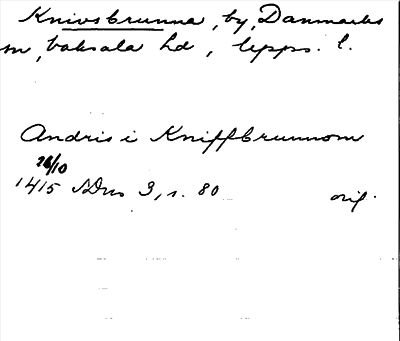 Knivsbrunna, by, Danmarks
sn, Vaksala hd, Upps. l.
Andris i Kniffbrunnom
26/10
1415 SDns 3, s. 80 orig.